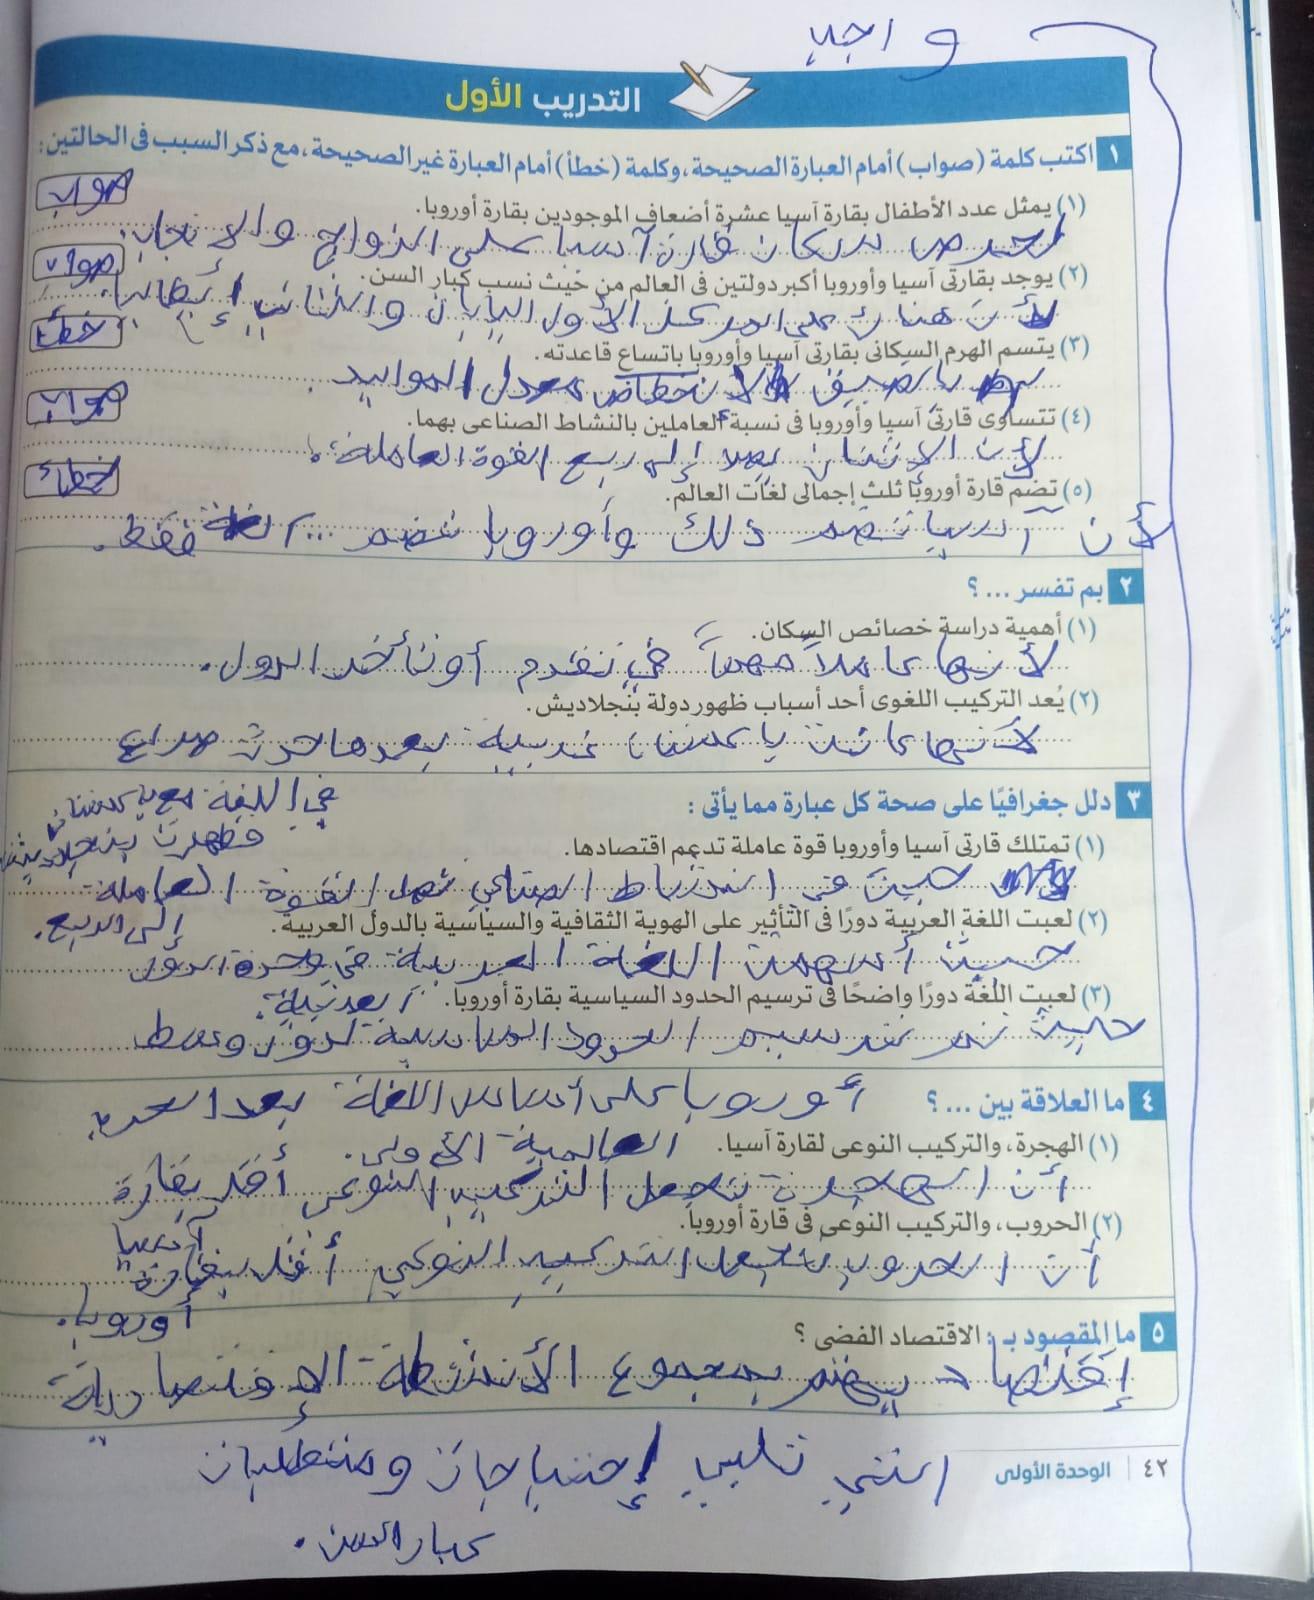 واجب
التدريب الأول
١ اكتب كلمة (صواب) أمام العبارة الصحيحة، وكلمة (خطأ) أمام العبارة غير الصحيحة، مع ذكر السبب فى الحالتين:
(١) يمثل عدد الأطفال بقارة آسيا عشرة أضعاف الموجودين بقارة أوروبا.
صواب
لحرص سكان قارة آسيا على الزواج والإنجاب.
(٢) يوجد بقارتى آسيا وأوروبا أكبر دولتين فى العالم من حيث نسب كبار السن.
صواب
لأن هناك على المركز الأول اليابان والثانى إيطاليا.
(٣) يتسم الهرم السكانى بقارتى آسيا وأوروبا باتساع قاعدته.
خطأ
بالضيق لانخفاض معدل المواليد.
(٤) تتساوى قارتى آسيا وأوروبا فى نسبة العاملين بالنشاط الصناعى بهما.
صواب
لأن الإثنان يصل إلى ربع القوة العاملة.
(٥) تضم قارة أوروبا ثلث إجمالى لغات العالم.
خطأ
لأن آسيا تضم ذلك وأوروبا تضم ... لغة فقط.
٢ بم تفسر ... ؟
(١) أهمية دراسة خصائص السكان.
لأنها عاملاً مهماً في تقدم أو تأخر الدول.
(٢) يُعد التركيب اللغوى أحد أسباب ظهور دولة بنجلاديش.
لأنها كانت باكستان غربية بعدها حدث صراع
في اللغة مع باكستان
فظهرت بنجلاديش
٣ دلل جغرافيًا على صحة كل عبارة مما يأتى :
(١) تمتلك قارتى آسيا وأوروبا قوة عاملة تدعم اقتصادها.
حيث في النشاط الصناعي تصل القوة العاملة
إلى الربع.
(٢) لعبت اللغة العربية دورًا فى التأثير على الهوية الثقافية والسياسية بالدول العربية.
حيث أسهمت اللغة العربية في وحدة الدول
العربية.
(٣) لعبت اللغة دورًا واضحًا فى ترسيم الحدود السياسية بقارة أوروبا.
حيث تم ترسيم الحدود السياسية لدول وسط
أوروبا على أساس اللغة بعد الحرب
العالمية الأولى.
٤ ما العلاقة بين ... ؟
(١) الهجرة، والتركيب النوعى لقارة آسيا.
أن الهجرة تجعل التركيب النوعى أقل بقارة
آسيا
(٢) الحروب، والتركيب النوعى فى قارة أوروبا.
أن الحروب تجعل التركيب النوعي أقل بقارة
أوروبا.
٥ ما المقصود بـ : الاقتصاد الفضى ؟
إقتصاد يهتم بمجموع الأنشطة الإقتصادية
التي تلبي إحتياجات ومتطلبات
كبار السن.
٤٢ | الوحدة الأولى